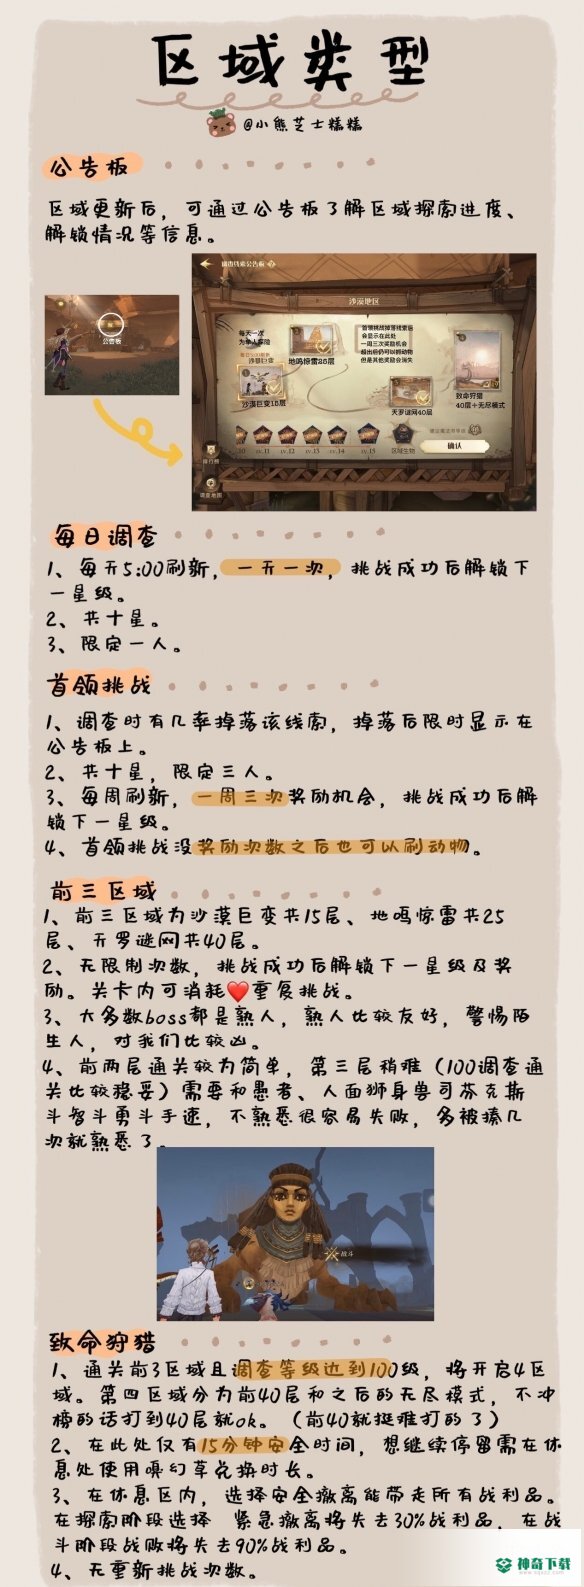 区域类型
@小熊芝士糕糕
公告板
区域更新后，可通过公告板了解区域探索进度、
解锁情况等信息。
调查线索公告板
沙漠地区
公告板
每天一次
为单人探险
沙漠巨变
地鸣惊雷25层
首领挑战掉落线索后
会显示在此处
一周三次奖励机会
超出后仍可以抓动物
但是其他奖励会消失
沙漠巨变15层
天罗谜网40层
致命狩猎
40层+无尽模式
LV.11
LV.12
LV.13
LV.14
LV.15
区域生物
确认
排行榜
调查地图
每日调查
1、每天5:00刷新，一天一次，挑战成功后解锁下
一星级。
2、共十星。
3、限定一人。
首领挑战
1、调查时有几率掉落该线索，掉落后限时显示在
公告板上。
2、共十星，限定三人。
3、每周刷新，一周三次奖励机会，挑战成功后解
锁下一星级。
4、首领挑战没奖励次数之后也可以刷动物。
前三区域
1、前三区域为沙漠巨变共15层、地鸣惊雷共25
层、天罗谜网共40层。
2、无限制次数，挑战成功后解锁下一星级及奖
励。关卡内可消耗❤️重复挑战。
3、大多数boss都是熟人，熟人比较友好，警惕陌
生人，对我们比较凶。
4、前两层通关较为简单，第三层稍难（100调查通
关比较稳妥）需要和愚者、人面狮身兽司芬克斯
斗智斗勇斗手速，不熟悉很容易失败，多被揍几
次就熟悉了。
战斗
致命狩猎
1、通关前3区域且调查等级达到100级，将开启4区
域。第四区域分为前40层和之后的无尽模式，不冲
榜的话打到40层就ok。（前40就挺难打的了）
2、在此处仅有15分钟安全时间，想继续停留需在休
息处使用嗅幻草兑换时长。
3、在休息区内，选择安全撤离能带走所有战利品。
在探索阶段选择 紧急撤离将失去30%战利品，在战
斗阶段战败将失去90%战利品。
4、无重新挑战次数。
神奇下载